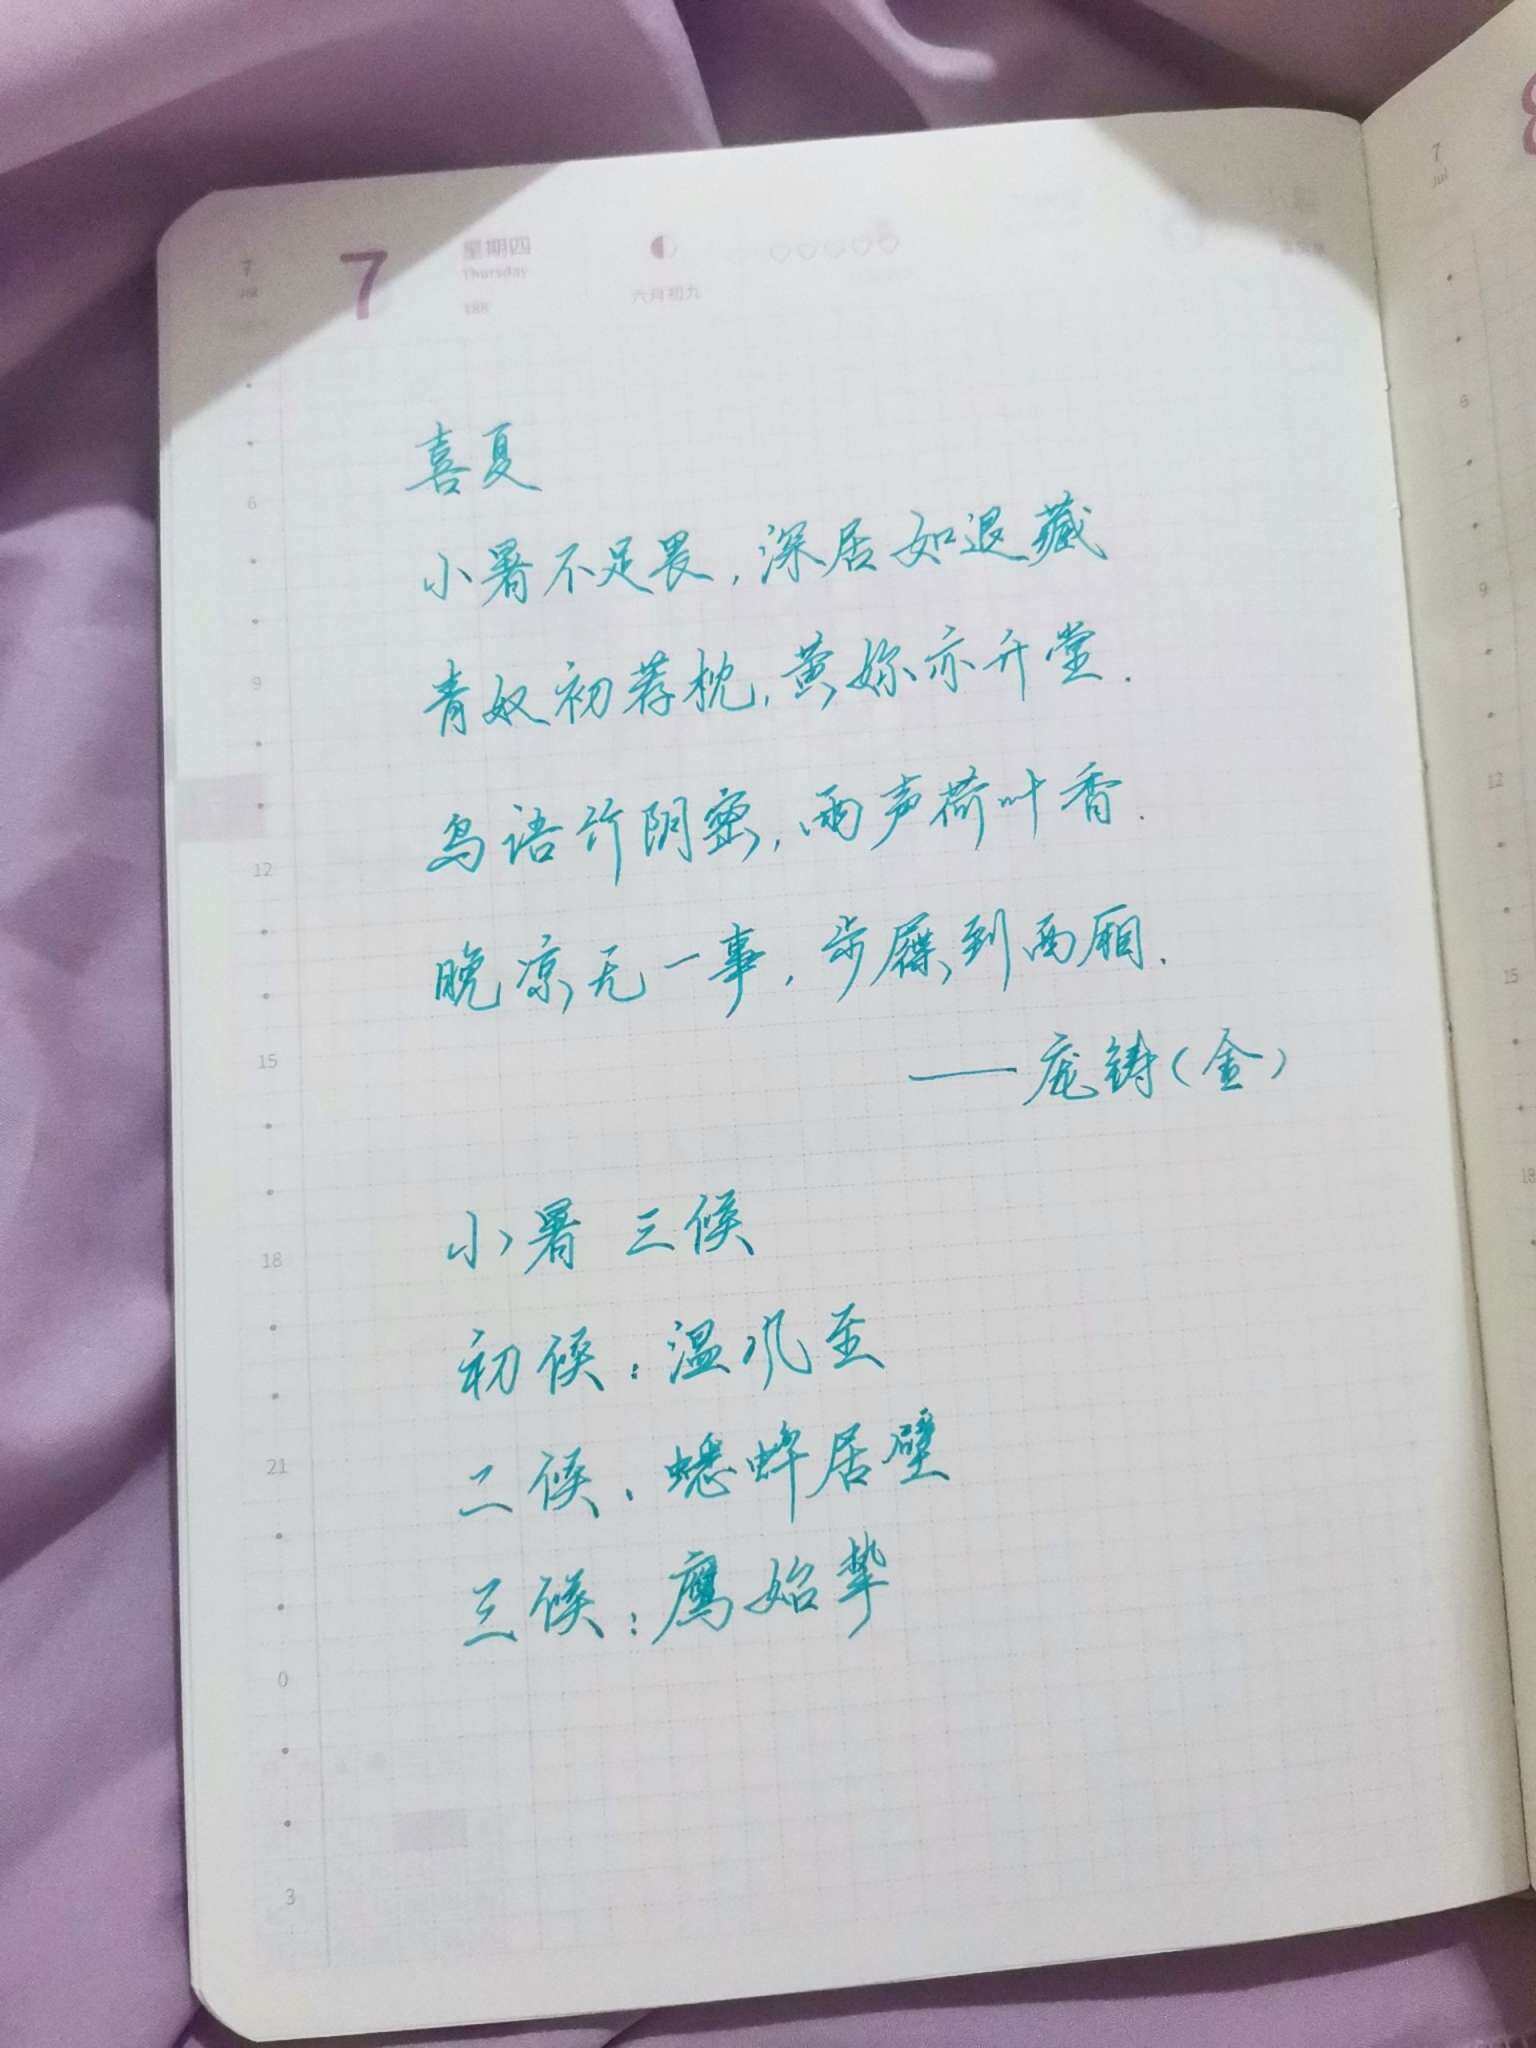 7
Jul
7
星期四
Thursday
188
六月初九
喜夏
小暑不足畏，深居如退藏
青奴初荐枕，黄妳亦升堂．
鸟语竹阴密，雨声荷叶香．
晚凉无一事，步屧到西厢．
——庞铸（金）
小暑 三候
初候：温风至
二候：蟋蟀居壁
三候：鹰始挚
6
9
12
15
18
21
0
3
7
Jul
8
6
9
12
15
18